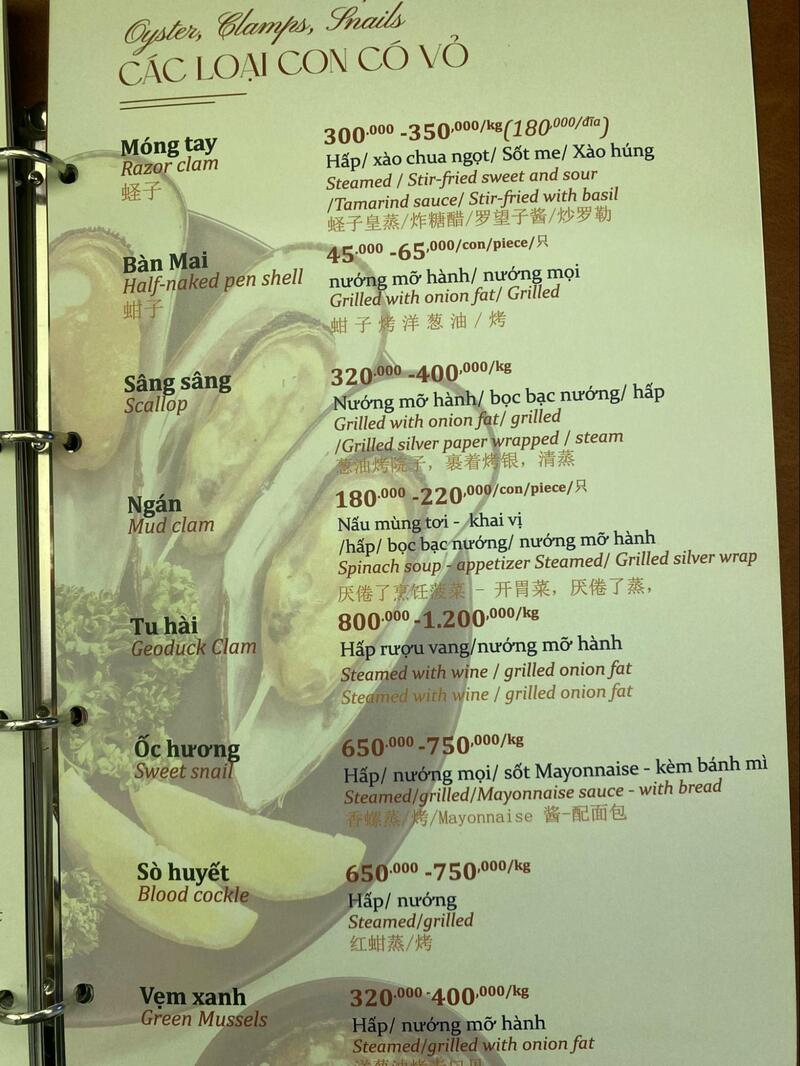 Oyster, Clamps, Snails
CÁC LOẠI CON CÓ VỎ
Móng tay
Razor clam
蛏子
300.000 -350,000/kg(180,000/đĩa)
Hấp/ xào chua ngọt/ Sốt me/ Xào húng
Steamed / Stir-fried sweet and sour
/Tamarind sauce/ Stir-fried with basil
蛏子皇蒸/炸糖醋/罗望子酱/炒罗勒
Bàn Mai
Half-naked pen shell
蚶子
45.000 -65,000/con/piece/只
nướng mỡ hành/ nướng mọi
Grilled with onion fat/ Grilled
蚶子烤洋葱油/烤
Sâng sâng
Scallop
320.000 -400,000/kg
Nướng mỡ hành/ bọc bạc nướng/ hấp
Grilled with onion fat/ grilled
/Grilled silver paper wrapped / steam
葱油烤院子，裹着烤银，清蒸
Ngán
Mud clam
180.000 -220,000/con/piece/只
Nấu mùng tơi - khai vị
/hấp/ bọc bạc nướng/ nướng mỡ hành
Spinach soup - appetizer Steamed/ Grilled silver wrap
厌倦了烹饪菠菜 - 开胃菜，厌倦了蒸，
Tu hài
Geoduck Clam
800.000 -1.200,000/kg
Hấp rượu vang/nướng mỡ hành
Steamed with wine / grilled onion fat
Steamed with wine / grilled onion fat
Ốc hương
Sweet snail
650.000 -750,000/kg
Hấp/ nướng mọi/ sốt Mayonnaise - kèm bánh mì
Steamed/grilled/Mayonnaise sauce - with bread
香螺蒸/烤/Mayonnaise 酱-配面包
Sò huyết
Blood cockle
650.000 -750,000/kg
Hấp/ nướng
Steamed/grilled
红蚶蒸/烤
Vẹm xanh
Green Mussels
320.000 -400,000/kg
Hấp/ nướng mỡ hành
Steamed/grilled with onion fat